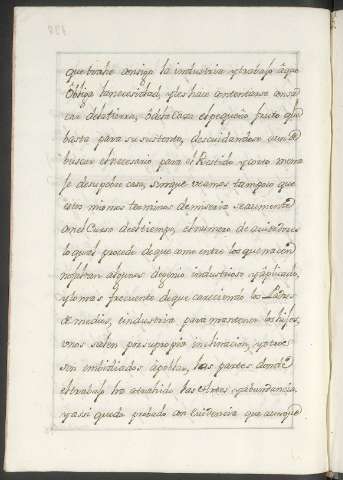 que trahe consigo la industria y trabajo â que
Obliga la necesidad, y les hace contentarse con sa
car de la tierra, ô de la Caza el pequeño fruto que
basta para su sustento, descuidandose aun de
buscar el necesario para el Vestido y corto mena
je de su pobre casa, sin que veamos tampoco que
estos mismos terminos de miseria se aumente
en el Curso del tiempo, el numero de avitadores
lo qual procede de que como entre los que nacen
no faltan algunos de genio industrioso y aplicado,
y lo mas frecuente de que careciendo los Padres
de medios, è industria para mantener los hijos,
unos salen por su propia inclinacion, y otros
son embidiados a poblar, las partes donde
el trabajo ha atrahido las artes y abundancia
y assi queda probado con Evidencia que aunque